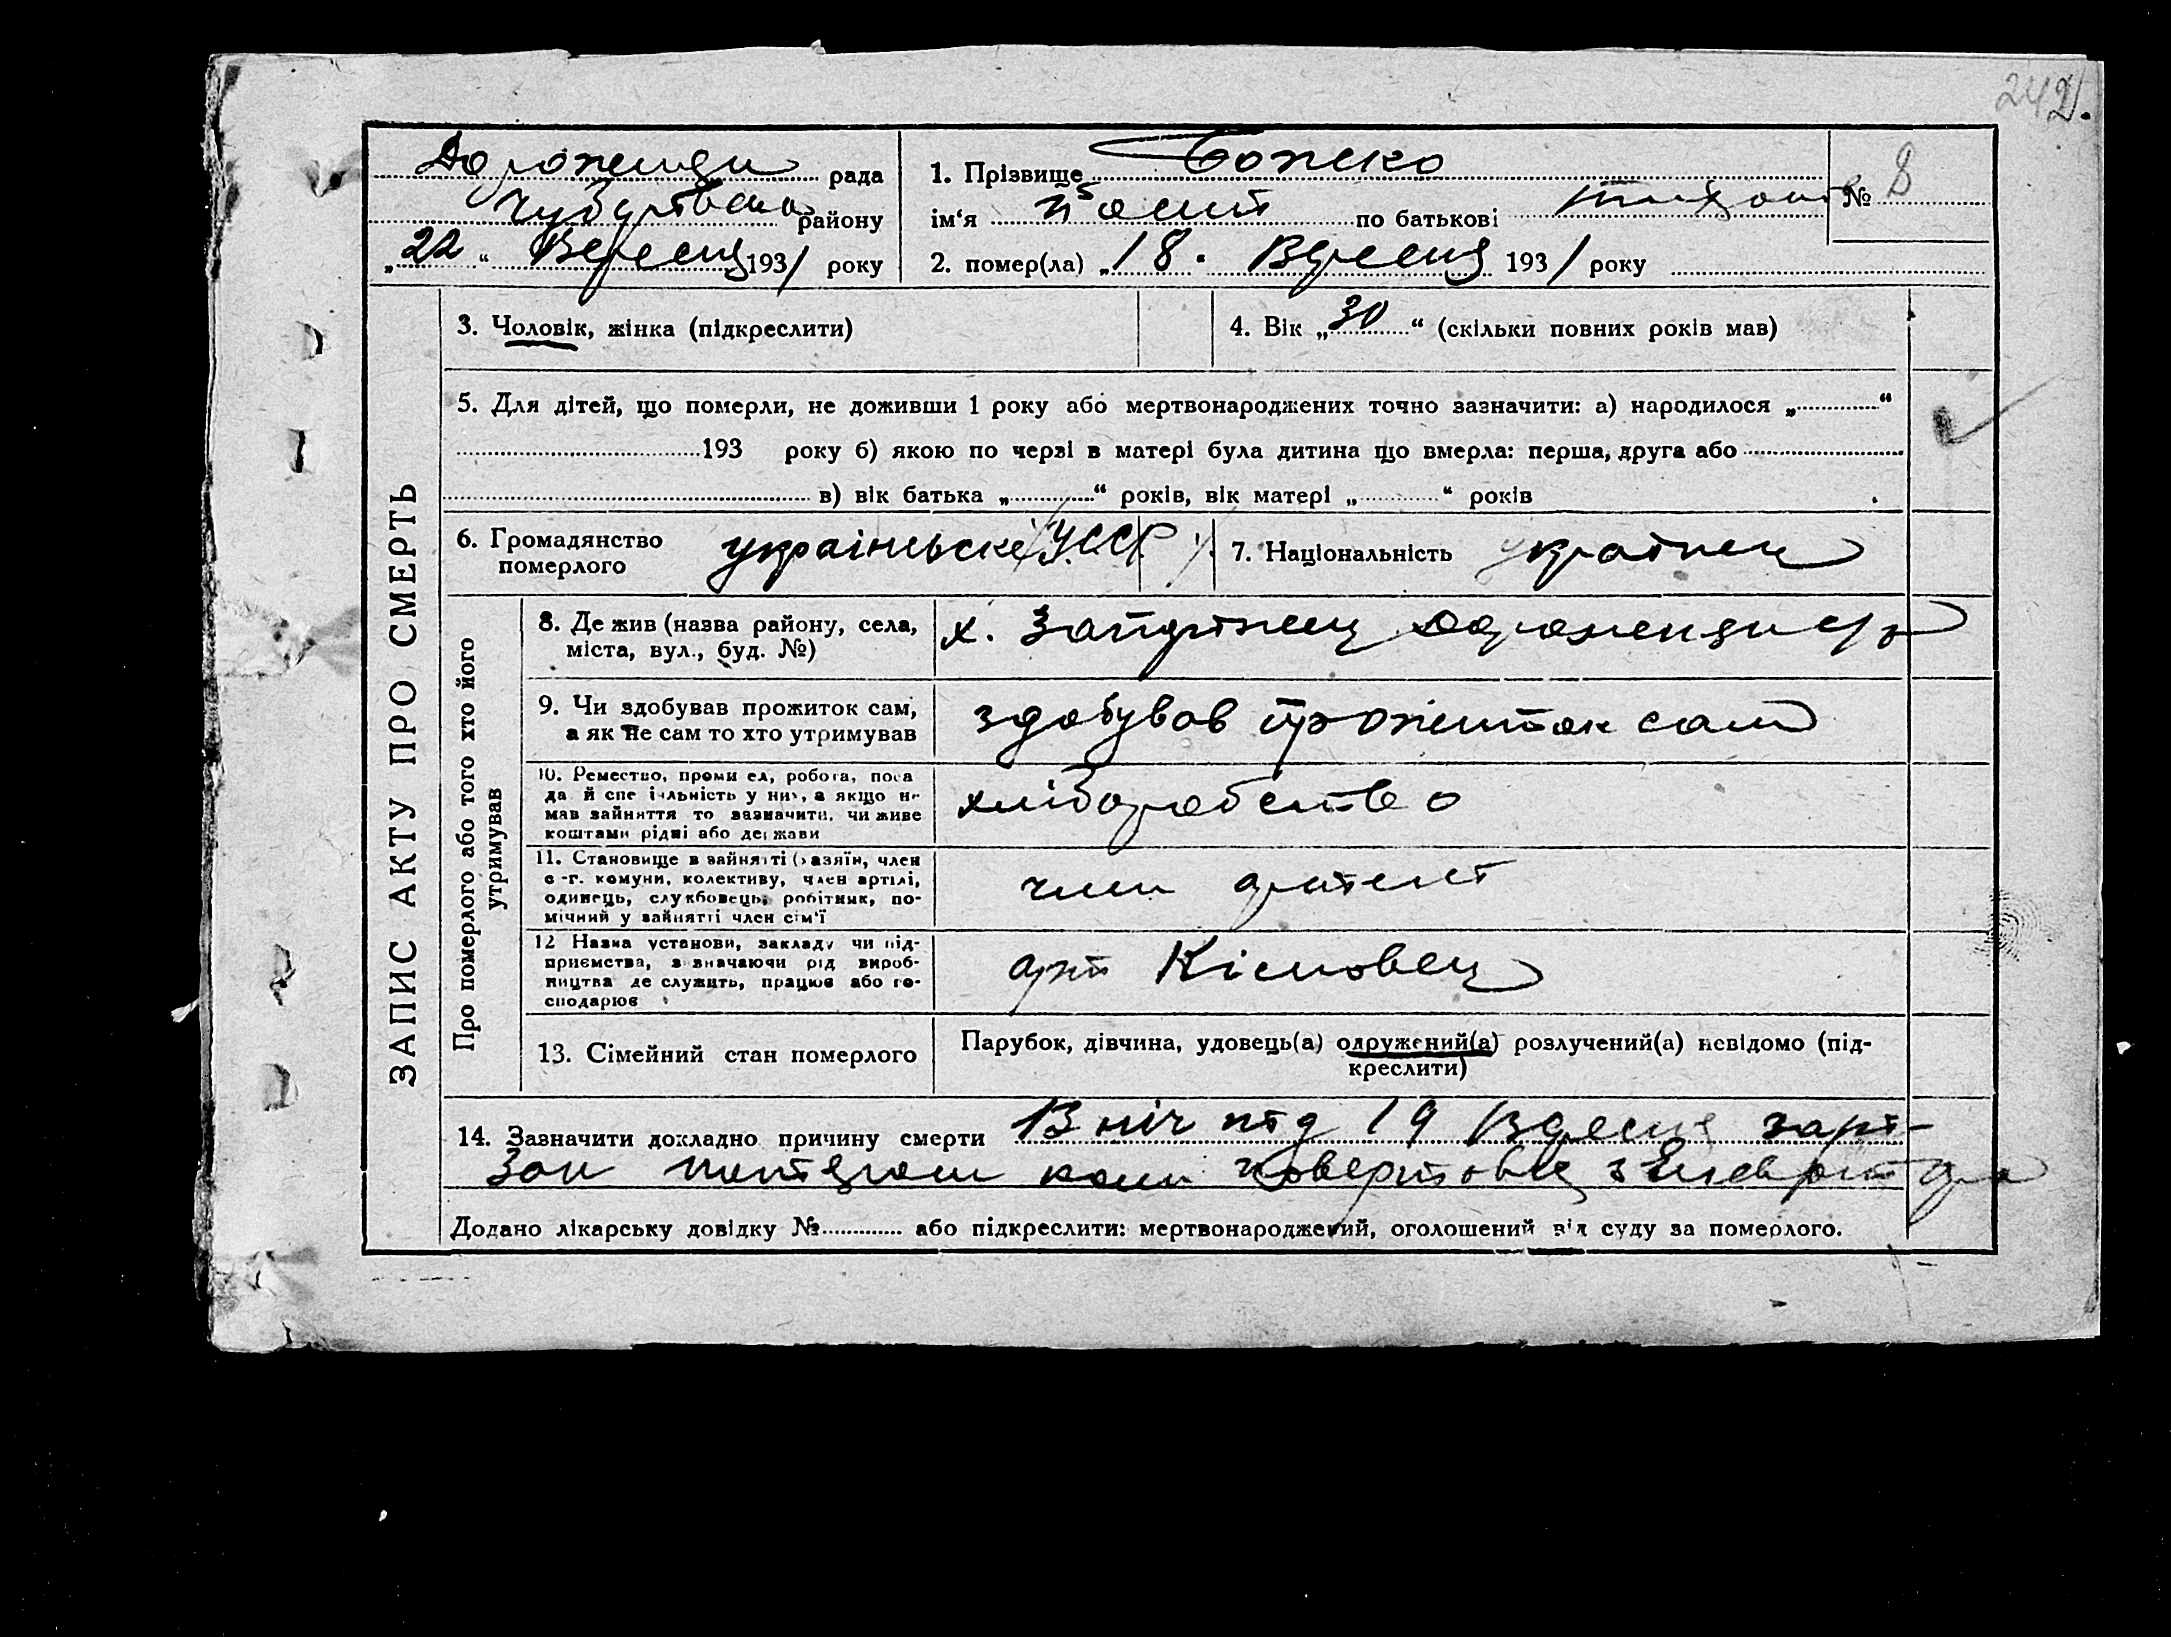 242.
рада
1. Прізвище Божко
№ 8
району
ім‘я по батькові
„22“ Вересня 1931 року
2. помер(ла) „18. Вересня 1931 року
ЗАПИС АКТУ ПРО СМЕРТЬ
3. Чоловік, жінка (підкреслити)
4. Вік „30“ (скільки повних років мав)
5. Для дітей, що померли, не доживши 1 року або мертвонароджених точно зазначити: а) народилося „ “
193 року б) якою по черзі в матері була дитина що вмерла: перша, друга або
в) вік батька „ “ років, вік матері „ “ років
6. Громадянство
померлого
українське УССР
7. Національність українец
Про померлого або того хто його
утримував
8. Де жив (назва району, села,
міста, вул., буд. №)
х.
9. Чи здобував прожиток сам,
а як не сам то хто утримував
здобував прожиток сам
10. Ремество, проми ел, робота, поса
да й спе іяльність у них, а якщо не
мав зайняття то зазначити, чи живе
коштами рідні або держави
хліборобство
11. Становище в зайнятті (хазяїн, член
с-г. комуни, колективу, член артілі,
одинець, службовець, робітник, по-
мічний у зайнятті член сім‘ї
член артелі
12 Назва установи, закладу чи під-
приємства, зазначаючи рід вироб-
ництва де служить, працює або го-
сподарює
арт
13. Сімейний стан померлого
Парубок, дівчина, удовець(а) одружений(а) розлучений(а) невідомо (під-
креслити)
14. Зазначити докладно причину смерти В ніч під 19 Вересня заріз
зан потягом коли повертовся з
Додано лікарську довідку № або підкреслити: мертвонароджений, оголошений від суду за померлого.